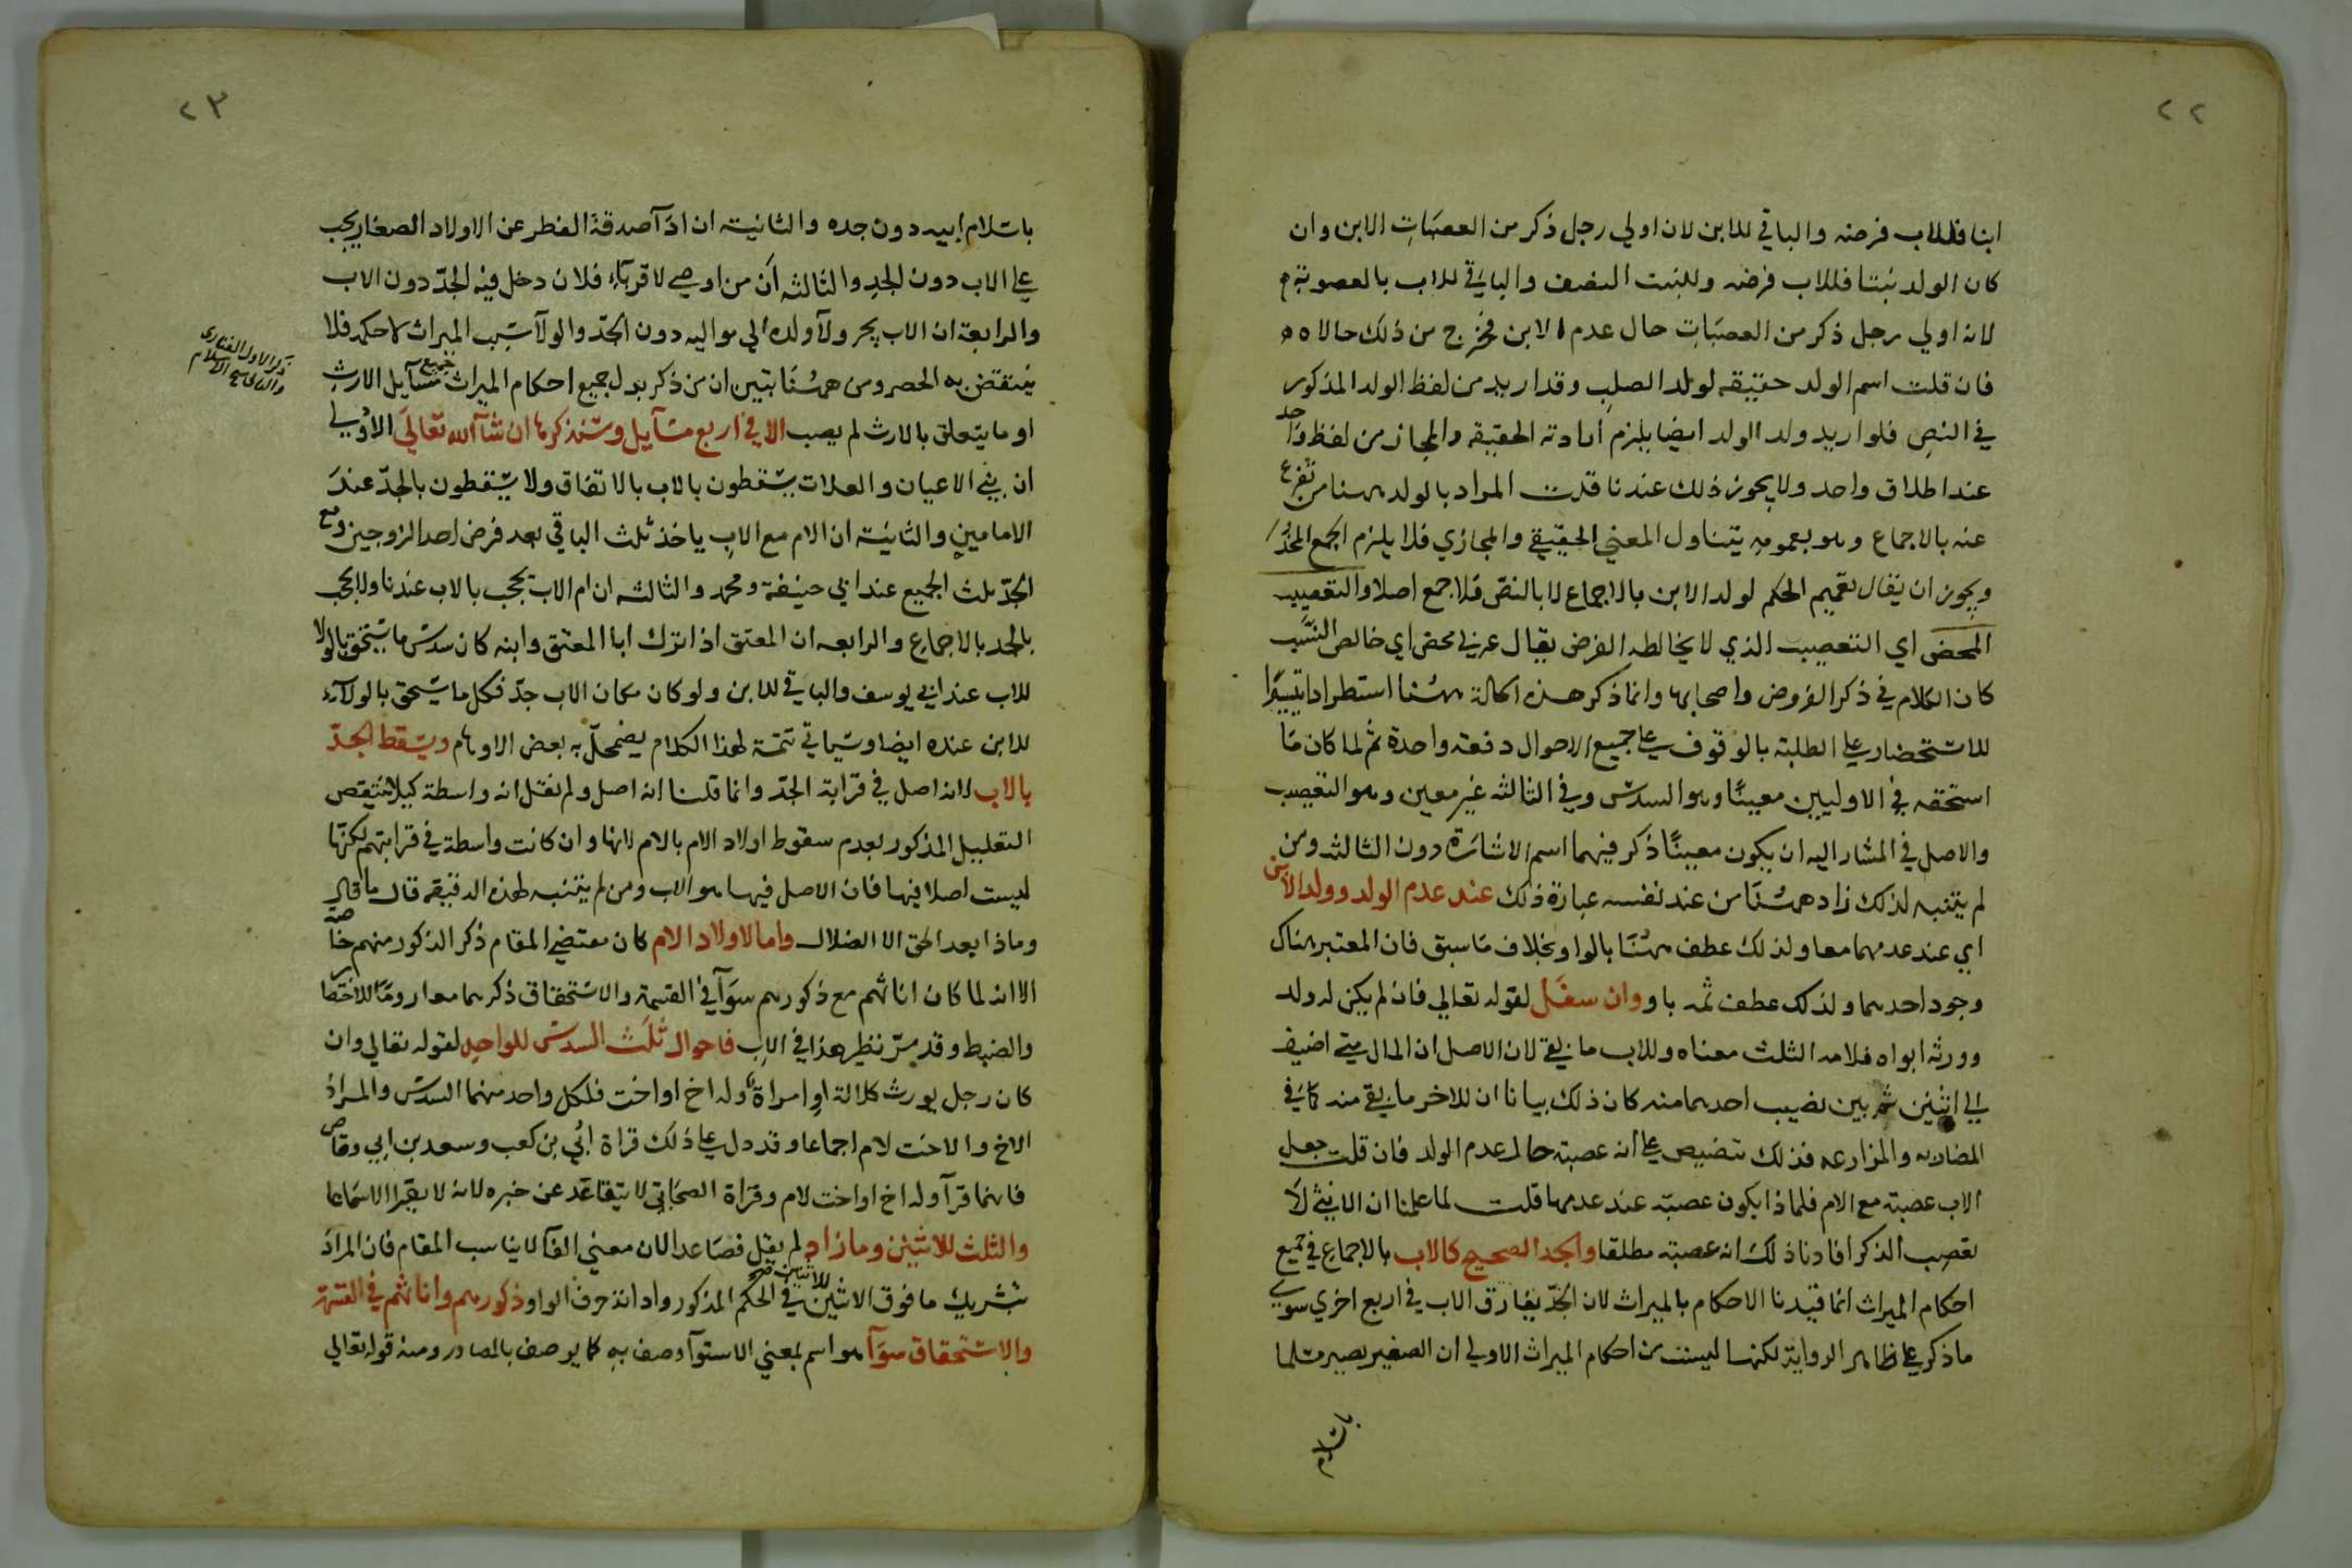 ٢٢
ابنا فللاب فرضه والباقي للابن لان اولي رجل ذكر من العصبات الابن وان
كان الولد بنتا فللاب فرضه وللبنت النصف والباقي للاب بالعصوبة
لانه اولي رجل ذكر من العصبات حال عدم الابن فخرج من ذلك حالاه
فان قلت اسم الولد حقيقه لولد الصلب وقد اريد من لفظ الولد المذكور
في النص فلو اريد ولد الولد ايضا يلزم ارادته الحقيقه والمجاز من لفظ واحد
عند اطلاق واحد ولا يجوز ذلك عندنا قلت المراد بالولد ههنا من تفرع
عنه بالاجماع وهو بعمومه يتناول المعني الحقيقي والمجازي فلا يلزم الجمع
ويجوز ان يقال تعميم الحكم لولد الابن بالاجماع لا بالنص فلا جمع اصلا والتعصيب
المحض اي التعصيب الذي لا يخالطه الفرض يقال عربي محض اي خالص النسب
كان الكلام في ذكر الفروض واصحابها وانما ذكر هذه الحالة ههنا استطرادا تيسيرا
للاستحضار علي الطلبة بالوقوف علي جميع الاحوال دفعة واحدة ثم لما كان ما
استحقه في الاوليين معينا وهو السدس وفي الثالثه غير معين وهو التعصيب
والاصل في المشار اليه ان يكون معينا ذكر فيهما اسم الاشارة دون الثالثه ومن
لم يتنبه لذلك زاد ههنا من عند نفسه عبارة ذلك عند عدم الولد وولد الابن
اي عند عدمهما معا ولذلك عطف ههنا بالواو بخلاف ما سبق فان المعتبر هناك
وجود احدهما ولذلك عطف ثمه باو وان سفل لقوله تعالي فان لم يكن له ولد
وورثه ابواه فلامه الثلث معناه وللاب ما بقي لان الاصل ان المال متي اضيف
الي اثنين ثم بين نصيب احدهما منه كان ذلك بيانا ان للاخر ما بقي منه كما في
المضاربه والمزارعه فذلك تنصيص علي انه عصبته حال عدم الولد فان قلت جعل
الاب عصبته مع الام فلماذا يكون عصبته عند عدمها قلت لما علمنا ان الانثي لا
تعصب الذكر افادنا ذلك انه عصبته مطلقا والجد الصحيح كالاب بالاجماع في جميع
احكام الميراث انما قيدنا الاحكام بالميراث لان الجد يفارق الاب في اربع اخري سوي
ما ذكر علي ظاهر الرواية لكنها ليست من احكام الميراث الاولي ان الصغير يصير مسلما
باسلام
٢٣
باسلام ابيه دون جده والثانية ان ادا صدقة الفطر عن الاولاد الصغار يجب
علي الاب دون الجد والثالثه ان من اوصي لاقرباء فلان دخل فيه الجد دون الاب
والرابعة ان الاب يجر ولآ ولده الي مواليه دون الجد والولآ سبب الميراث لا حكمه فلا
ينتقض به الحصر ومن ههنا تبين ان من ذكر بدل جميع احكام الميراث جميع مسايل الارث
او ما يتعلق بالارث لم يصب الا في اربع مسايل وسنذكرها ان شآ الله تعالي الاولي
ان بني الاعيان والعلات يسقطون بالاب بالاتفاق ولا يسقطون بالجد عند
الامامين والثانية ان الام مع الاب ياخذ ثلث الباقي بعد فرض احد الزوجين ومع
الجد ثلث الجميع عند ابي حنيفة ومحمد والثالثه ان ام الاب تحجب بالاب عندنا ولا تحجب
بالجد بالاجماع والرابعه ان المعتق اذا ترك ابا المعتق وابنه كان سدس ما يستحق بالولا
للاب عند ابي يوسف والباقي للابن ولو كان مكان الاب جد فكل ما يستحق بالولآء
للابن عنده ايضا وسياتي تتمة لهذا الكلام يضمحل به بعض الاوهام ويسقط الجد
بالاب لانه اصل في قرابة الجد وانما قلنا انه اصل ولم نقل انه واسطة كيلا ينتقض
التعليل المذكور بعدم سقوط اولاد الام بالام لانها وان كانت واسطة في قرابتهم لكنها
ليست اصلا فيها فان الاصل فيها هو الاب ومن لم يتنبه لهذه الدقيقه قال ما قال
وماذا بعد الحق الا الضلال واما لاولاد الام كان مقتضي المقام ذكر الذكور منهم خاصة
الا انه لما كان اناثهم مع ذكورهم سوآ في القسمة والاستحقاق ذكرهما معا روما للاختصار
والضبط وقد مر نظير هذا في الاب فاحوال ثلث السدس للواحد لقوله تعالي وان
كان رجل يورث كلالة او امراة وله اخ او اخت فلكل واحد منهما السدس والمراد
الاخ والاخت لام اجماعا وقد دل علي ذلك قراة ابي بن كعب وسعد بن ابي وقاص
فانهما قرآ وله اخ او اخت لام وقراة الصحابي لا يتقاعد عن خبره لانه لا يقرا الا سماعا
والثلث للاثنين وما زاد لم يقل فصاعدا لان معني الفآ لا يناسب المقام فان المراد
تشريك ما فوق الاثنين للاثنين في الحكم المذكور واداته حرف الواو ذكورهم واناثهم في القسمة
والاستحقاق سوآ هو اسم بمعني الاستوآ وصف به كما يوصف بالمصادر ومنه قوله تعالي